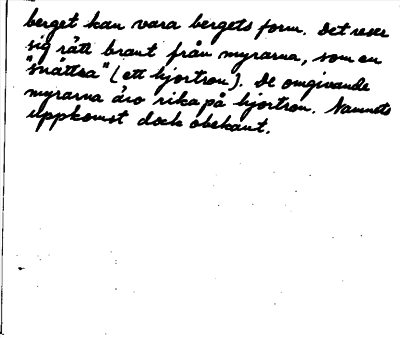 berget kan vara bergets form. Det reser
sig rätt brant från myrarna, som en
"snåttsa" (ett hjortron). De omgivande
myrarna äro rika på hjortron. Namnets
uppkomst dock obekant.